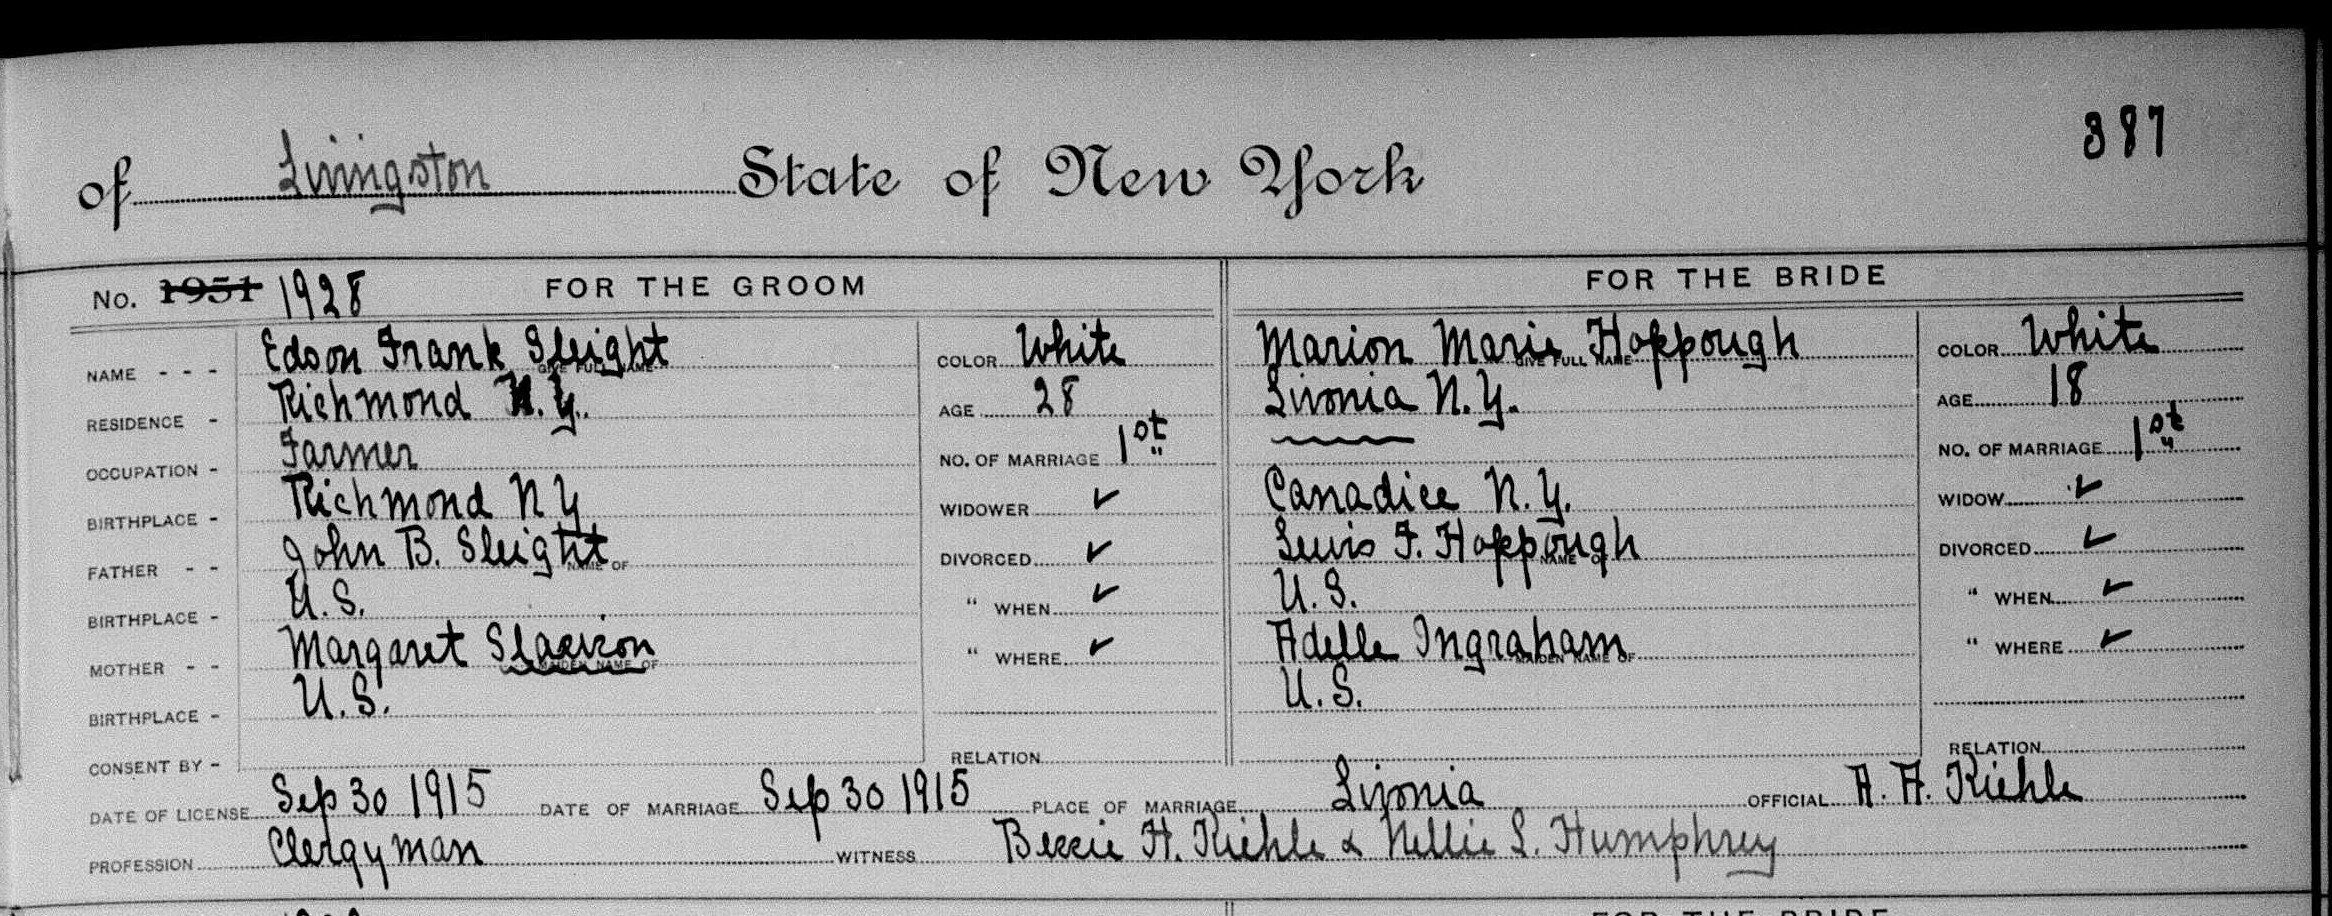 387
of Livingston State of New York
No. 1951 1928 FOR THE GROOM FOR THE BRIDE
NAME - - - Edson Frank Sleight GIVE FULL NAME COLOR White Marion Marie Hoppough GIVE FULL NAME COLOR White
RESIDENCE - Richmond N.Y. AGE 28 Livonia N.Y. AGE 18
OCCUPATION - Farmer NO. OF MARRIAGE 1st NO. OF MARRIAGE 1st
BIRTHPLACE - Richmond N Y WIDOWER ✓ Canadice N.Y. WIDOW ✓
FATHER - - John B. Sleight NAME OF DIVORCED ✓ Lewis F. Hoppough NAME OF DIVORCED ✓
BIRTHPLACE - U.S. " WHEN ✓ U.S. " WHEN ✓
MOTHER - - Margaret MAIDEN NAME OF " WHERE ✓ Adelle Ingraham MAIDEN NAME OF " WHERE ✓
BIRTHPLACE - U.S. U.S.
CONSENT BY - RELATION RELATION
DATE OF LICENSE Sep 30 1915 DATE OF MARRIAGE Sep 30 1915 PLACE OF MARRIAGE Livonia OFFICIAL A. A. Kiehle
PROFESSION Clergyman WITNESS Bessie H. Kiehle & Nellie S. Humphrey
FOR THE BRIDE